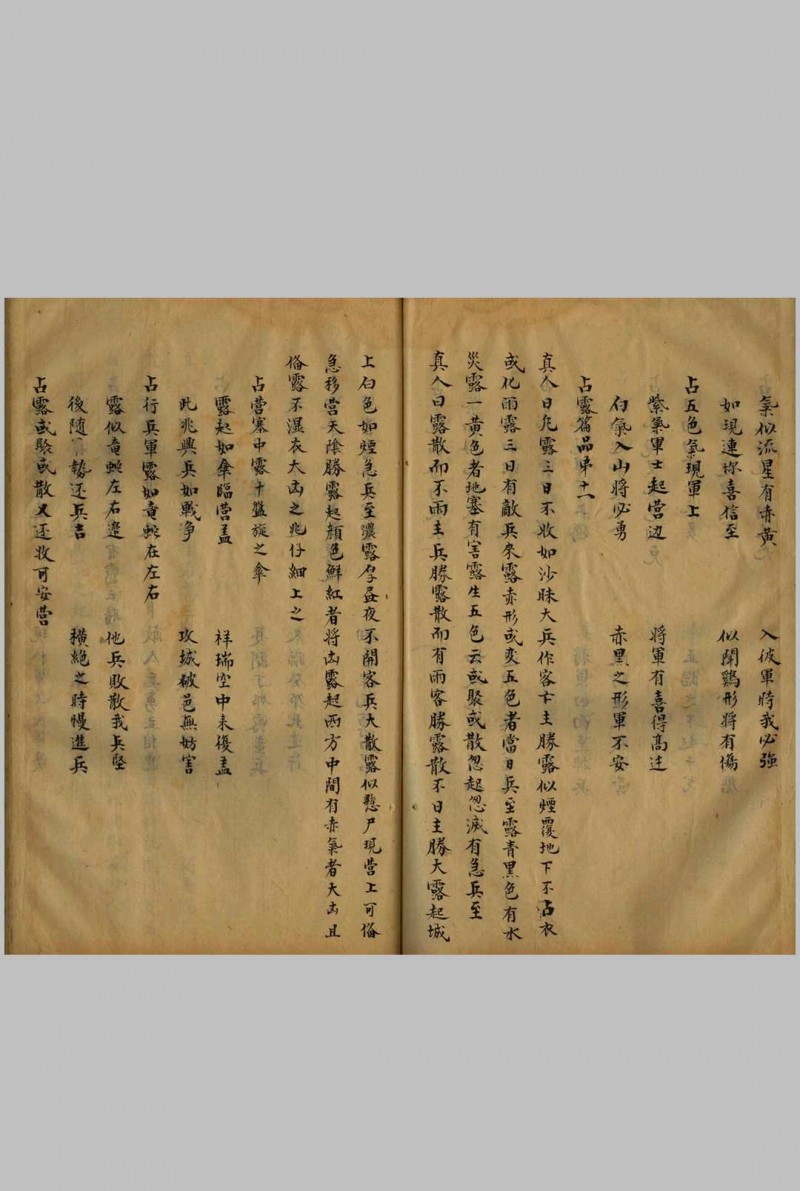 氣似流星有赤黃　入彼軍時我必強
如現連珎喜信至　似閗鷄形將有傷
占五色氣現軍上
紫氣軍士起营边　將軍有喜得高迁
白氣入山將必勇　赤黑之形軍不安
占露篇品苐十一
真人曰凢露三日不收如沙昧大兵作客亡主勝露似煙覆地下不占衣
或化雨露三日有敵兵來露赤形或变五色者當日兵至露青黑色有水
災露一黃色者地塞有害露生五色云或聚或散忽起忽滅有急兵至
真人曰露散而不雨主兵勝露散而有雨客勝露散不日主勝大露起城
上白色如煙急兵至濃露厚昼夜不開客兵大散露似懸尸現营上可俻
急移营天陰勝露起顔色鮮紅者將凶露起西方中間有赤氣者大凶且
俻露不濕衣大凶之兆仔細上之
占营寨中露十盤旋之傘
露起如傘臨营盖　祥瑞空中未後盖
此兆興兵如戰争　攻城破邑無妨害
占行兵軍露如竜蛇在左右
露似竜蛇左右邉　他兵敗散我兵堅
後随勢还兵吉　横絶之時慢進兵
占露或聚或散又还收可安营